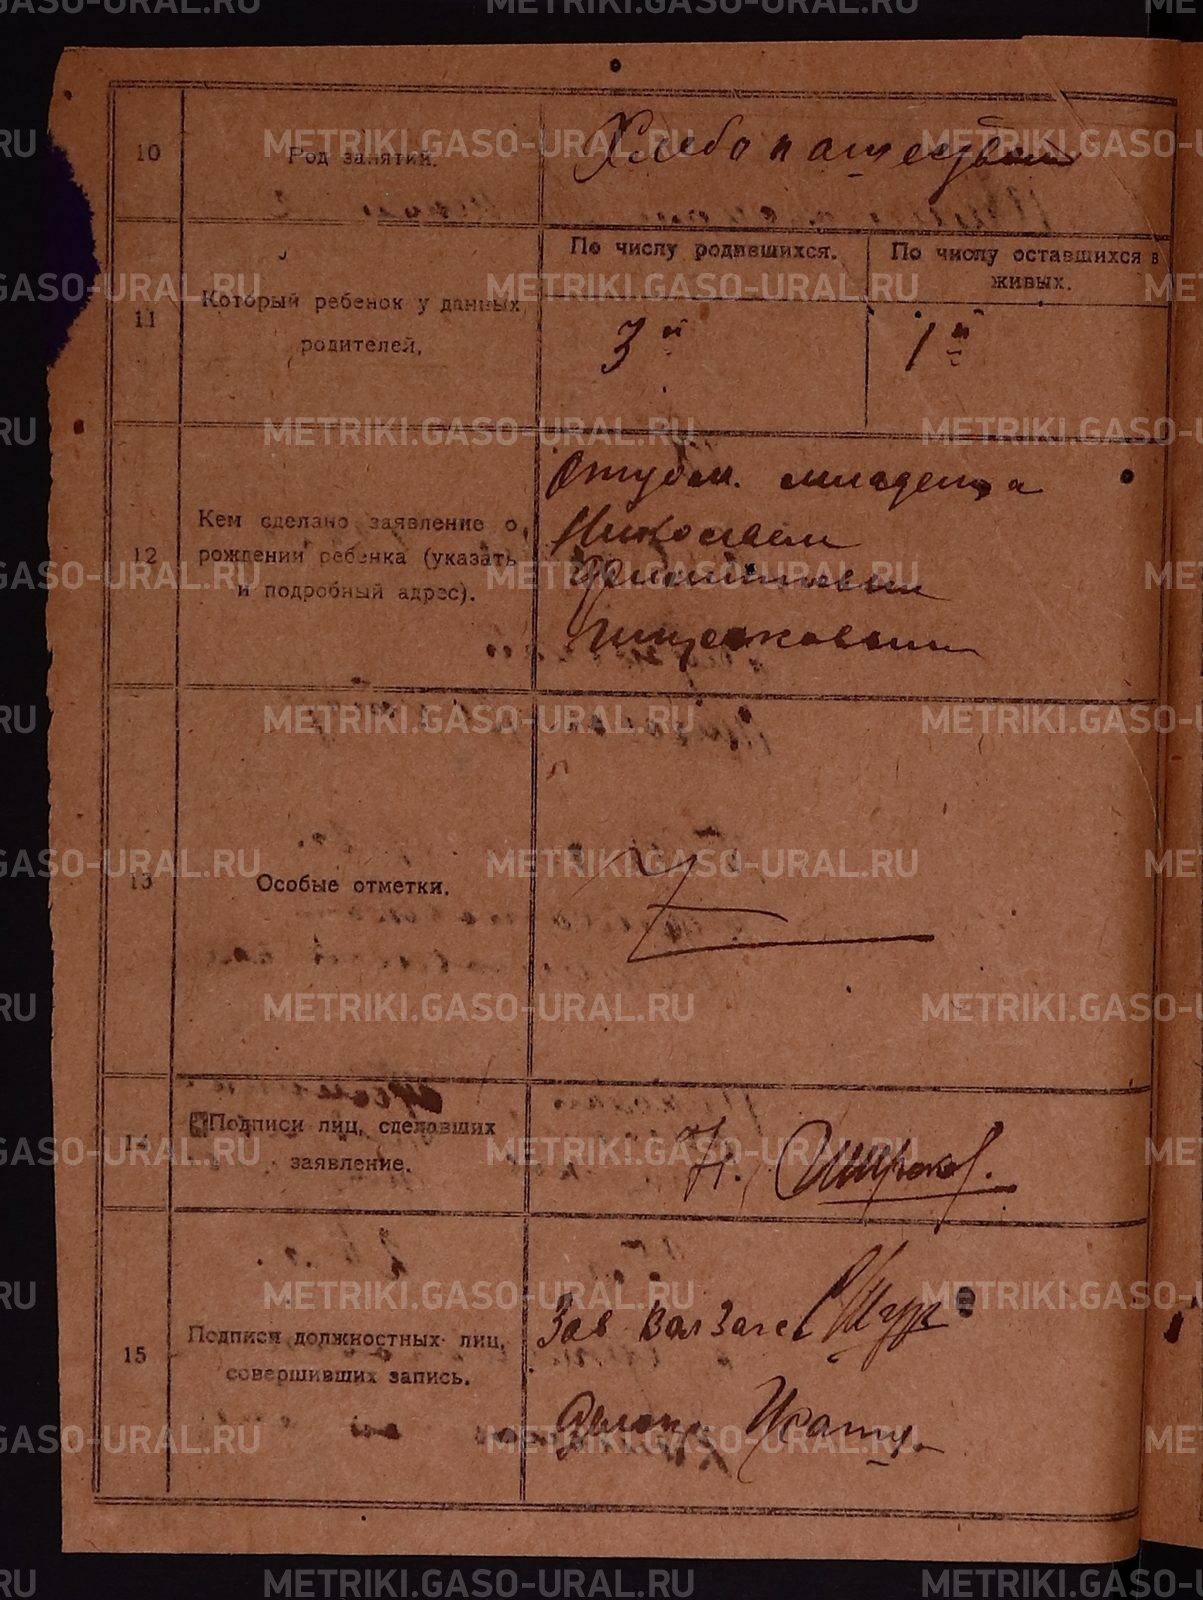 10
Род занятий.
Хлебопашество
11
Который ребенок у данных
родителей.
По числу родившихся.
По числу оставшихся в
живых.
3й
1й
12
Кем сделано заявление о
рождении ребенка (указать
и подробный адрес).
Отцом. младенца
Николаем
13
Особые отметки.
14
Подписи лиц, сделавших
заявление.
Н. Широков.
15
Подписи должностных лиц,
совершивших запись.
Зав
Делопр.
METRIKI.GASO-URAL.RU